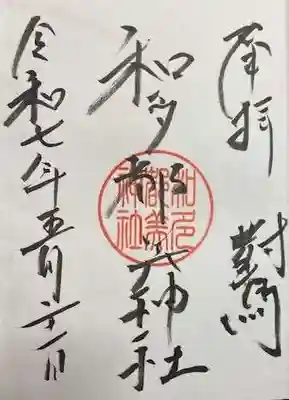 奉拝 對馬
和多都美神社
和多都美神社
令和七年五月二十一日